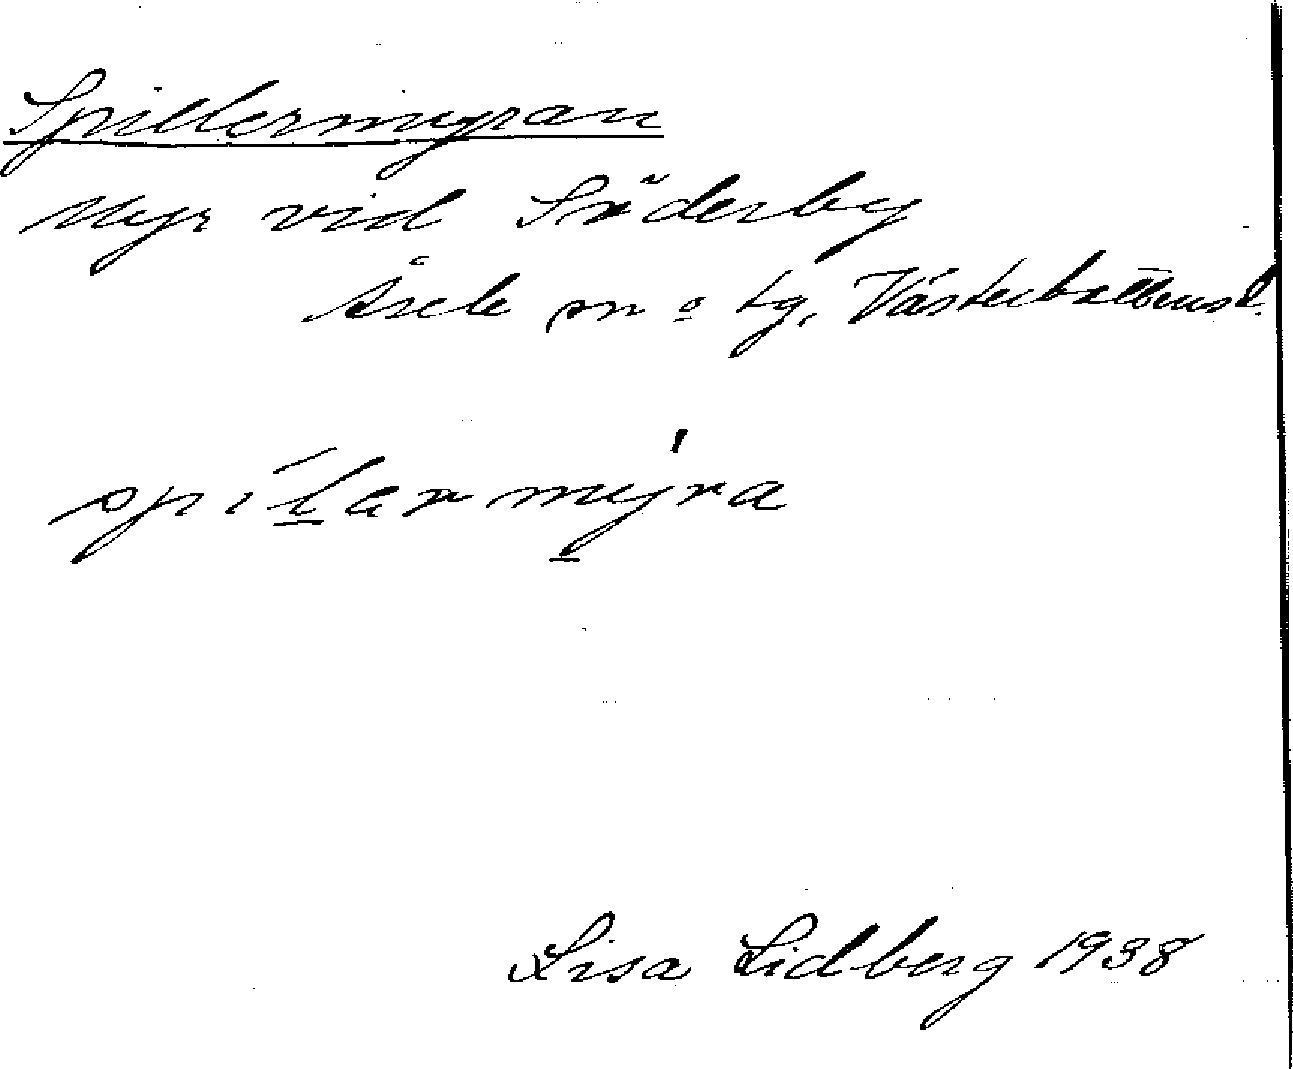 Spillermyran
Myr vid Söderby
Åsele sn o tg, Västerbottens l.
spilermýra
Lisa Lidberg 1938